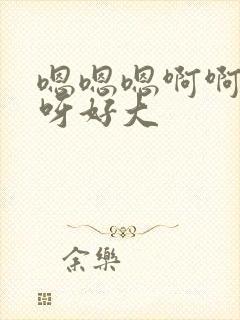 嗯嗯嗯啊啊
呀好大
余樂